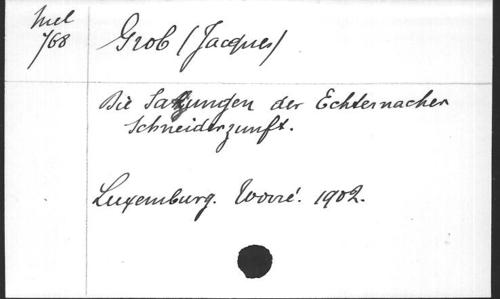 Mel
768
Grob (Jacques)
Die Satzungen der Echternacher
Schneiderzunft.
Luxemburg. Worré. 1902.